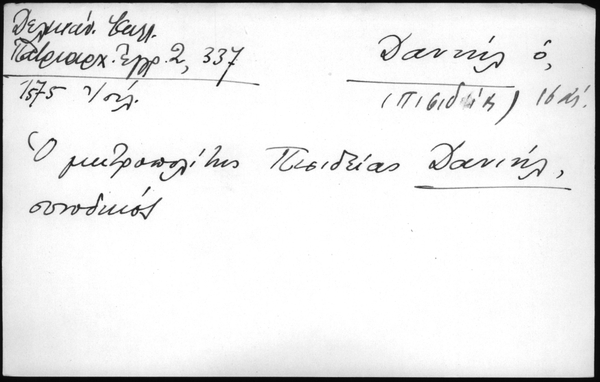 Δελικάν. Καλλ.
Πατριαρχ. Έγγρ. 2, 337
1575 Ἰούλ.
Δανιήλ ὁ,
(Πισιδίας) 16 αἰ.
Ὁ μητροπολίτης Πισιδείας Δανιήλ,
συνοδικός